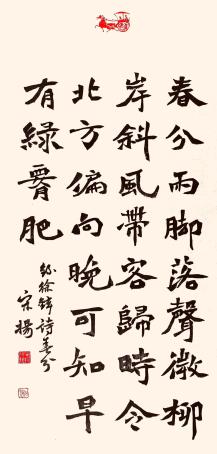 春分雨腳落聲微柳
岸斜風帶客歸時令
北方偏向晚可知早
有綠腰肥
錄徐鉉詩春分
宋揚